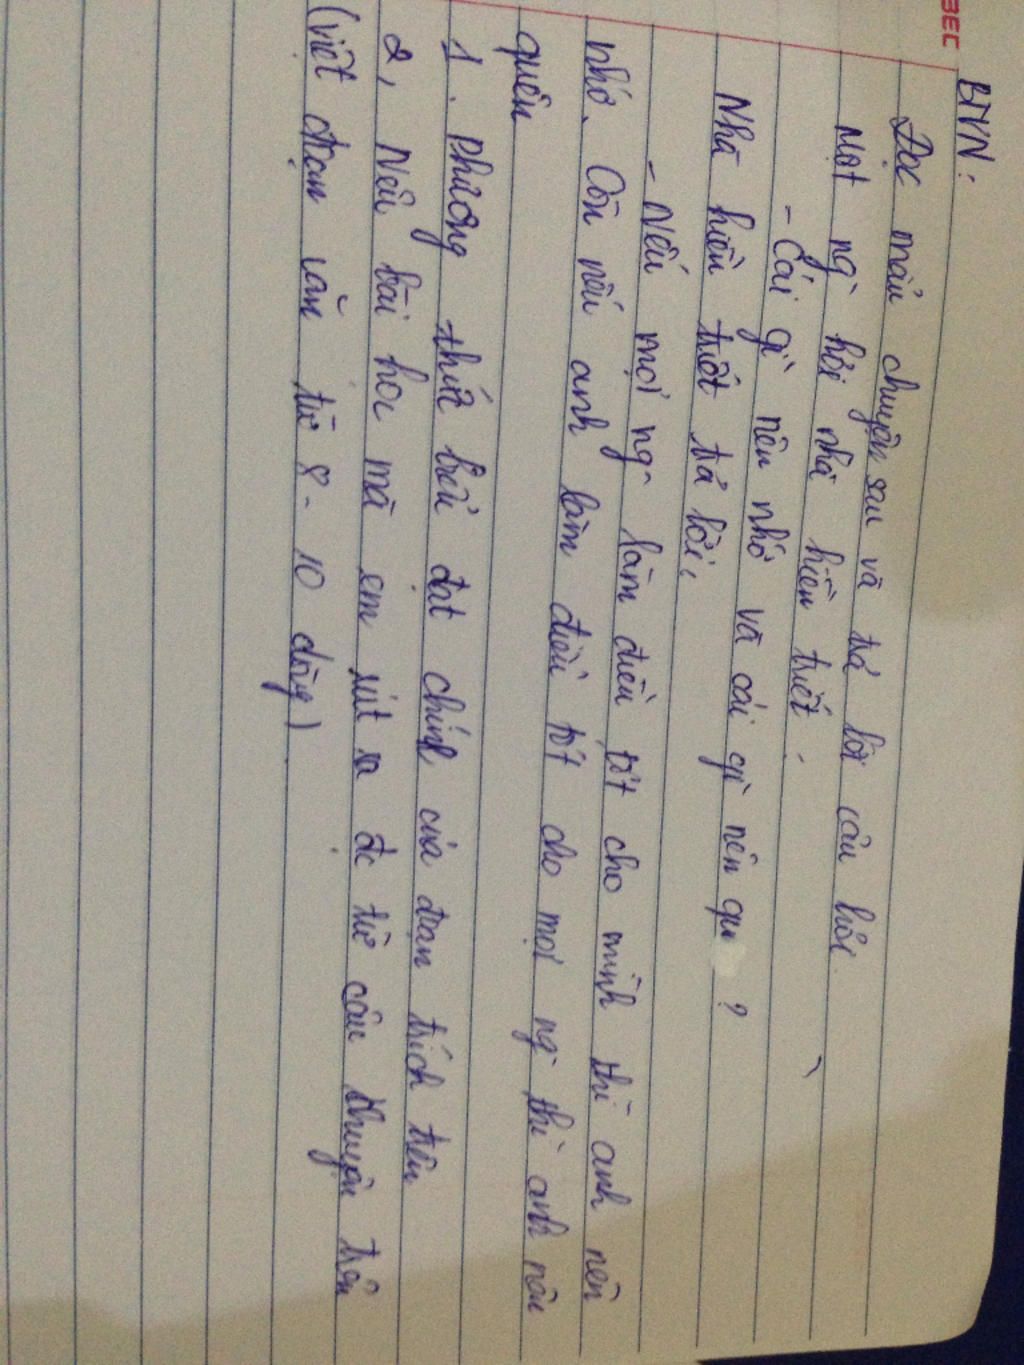 BEC
BTVN:
Đọc mẩu chuyện sau và trả lời câu hỏi
Một ng hỏi nhà hiền triết:
- Cái gì nên nhớ và cái gì nên qu ?
Nhà hiền triết trả lời,
- Nếu mọi ng làm điều tốt cho mình thì anh nên
nhớ. Còn nếu anh làm điều tốt cho mọi ng thì anh nên
quên
1. Phương thức biểu đạt chính của đoạn trích trên
2, Nêu bài học mà em rút ra đc từ câu chuyện trên
(viết đoạn văn từ 8 - 10 dòng)